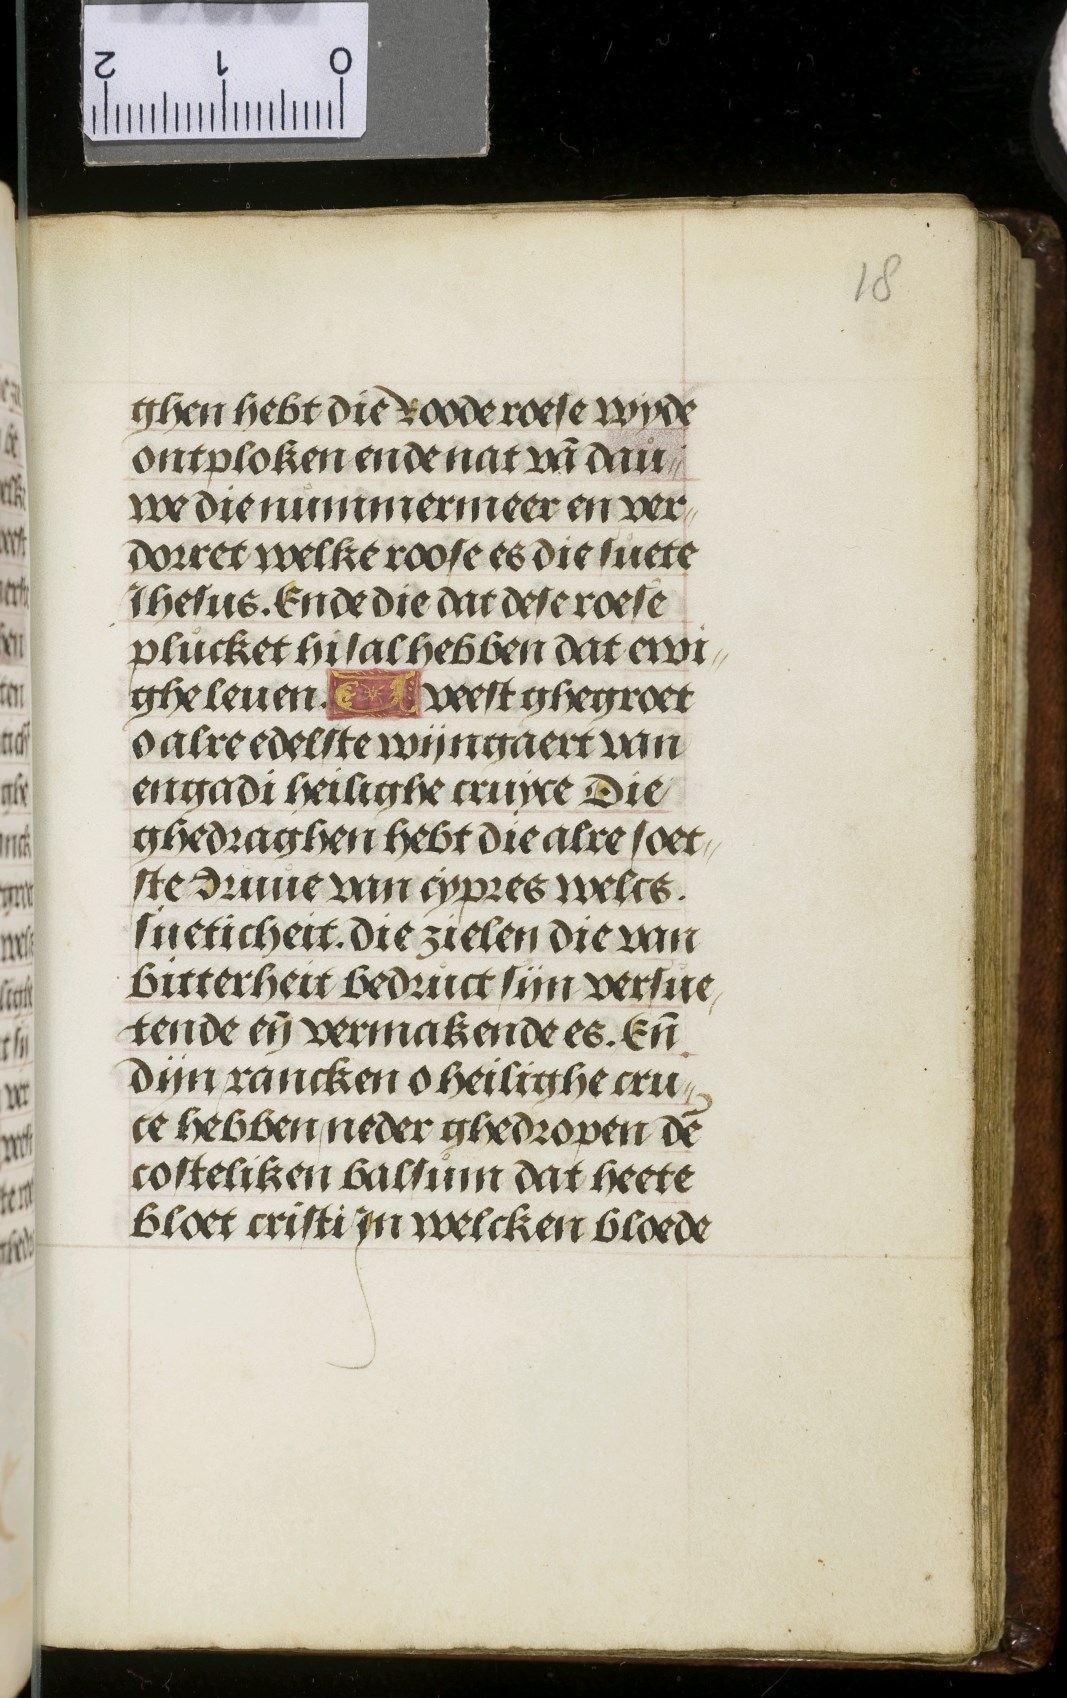 18
ghen hebt die Roode roese wyde
ontploken ende nat vā dau„
we die nummermeer en ver„
dorret welke roose es die suete
Ihesus. Ende die dat dese roese
plucket hi sal hebben dat ewi„
ghe leuen. weest ghegroet
o alre edelste wijngaert van
engadi heilighe cruyce Die
ghedraghen hebt die alre soet„
ste druue van cypres welcs.
sueticheit. die zielen die van
bitterheit bedruct sijn versue„
tende eñ vermakende es. Eñ
dijn rancken o heilighe cru„
ce hebben neder ghedropen dē
costeliken balsum dat heete
bloet cristi In welcken bloede
2 1 0